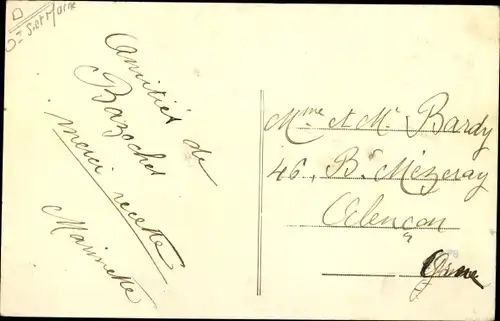 D
Amitiés de
Bazoches
merci recette
Marinette
Mme et Mr Bardy
46, Bd Mézeray
Alençon
Orne